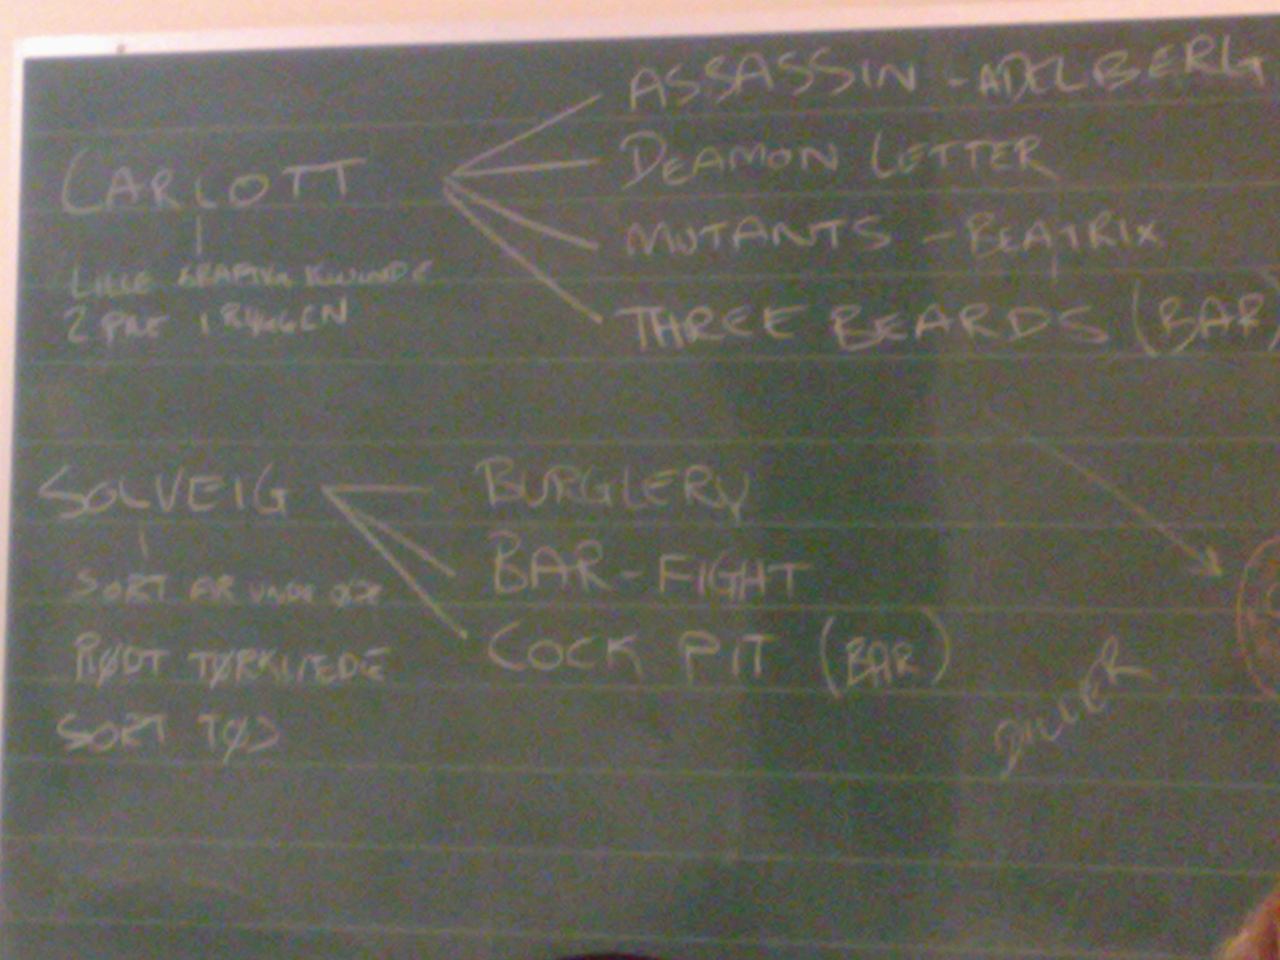 ASSASSIN - ADELBERG
DEAMON LETTER
CARLOTT
MUTANTS - BEATRIX
LILLE KVINDE
2 PILE I RYGGEN
THREE BEARDS (BAR)
SOLVEIG
BURGLERY
BAR-FIGHT
SORT AR UNDER ØJE
COCK PIT (BAR)
RØDT TØRKLÆDE
SORT TØJ